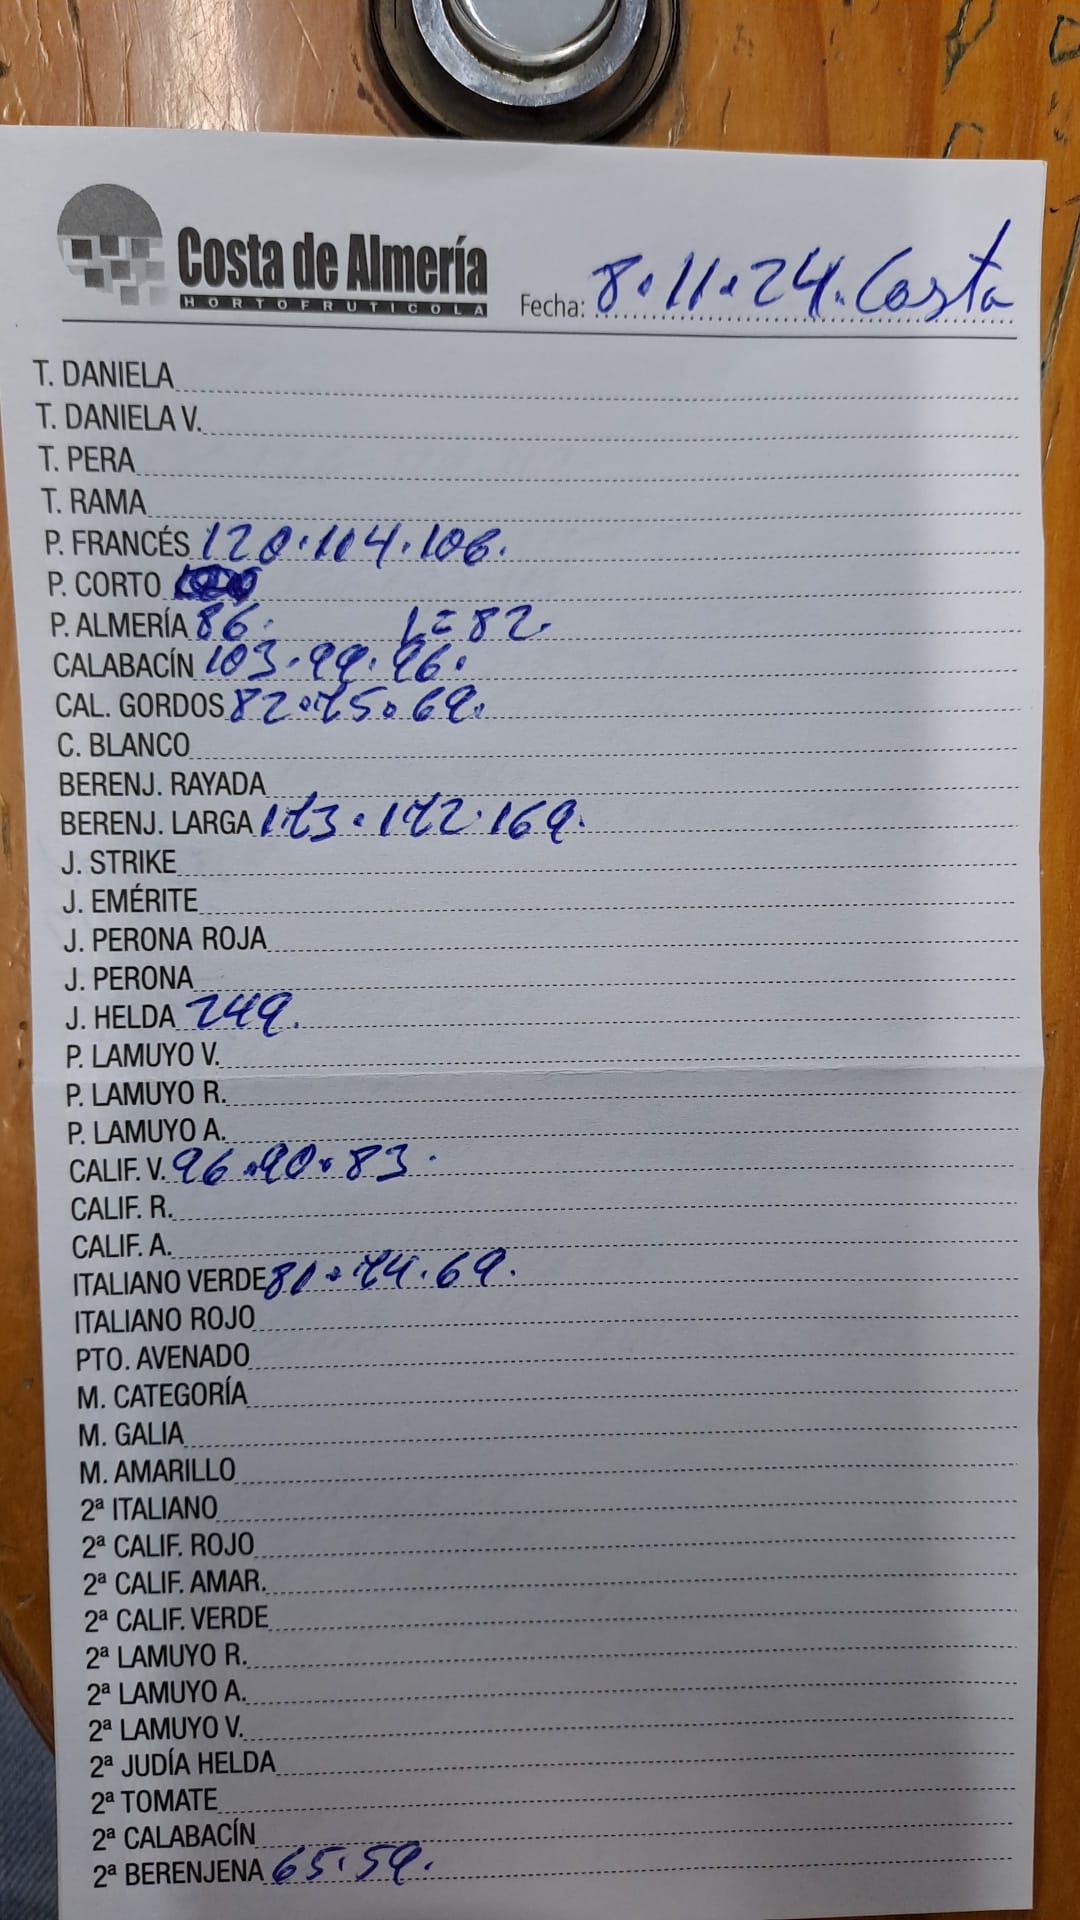 Costa de Almería
HORTOFRUTICOLA
Fecha: 8.11.24. Costa
T. DANIELA
T. DANIELA V.
T. PERA
T. RAMA
P. FRANCÉS 120.114.106.
P. CORTO
P. ALMERÍA 86. L=82.
CALABACÍN 103.99.96.
CAL. GORDOS 82.75.69.
C. BLANCO
BERENJ. RAYADA
BERENJ. LARGA 173.172.169.
J. STRIKE
J. EMÉRITE
J. PERONA ROJA
J. PERONA
J. HELDA 249.
P. LAMUYO V.
P. LAMUYO R.
P. LAMUYO A.
CALIF. V. 96.90.83.
CALIF. R.
CALIF. A.
ITALIANO VERDE 81.74.69.
ITALIANO ROJO
PTO. AVENADO
M. CATEGORÍA
M. GALIA
M. AMARILLO
2ª ITALIANO
2ª CALIF. ROJO
2ª CALIF. AMAR.
2ª CALIF. VERDE
2ª LAMUYO R.
2ª LAMUYO A.
2ª LAMUYO V.
2ª JUDÍA HELDA
2ª TOMATE
2ª CALABACÍN
2ª BERENJENA 65.59.